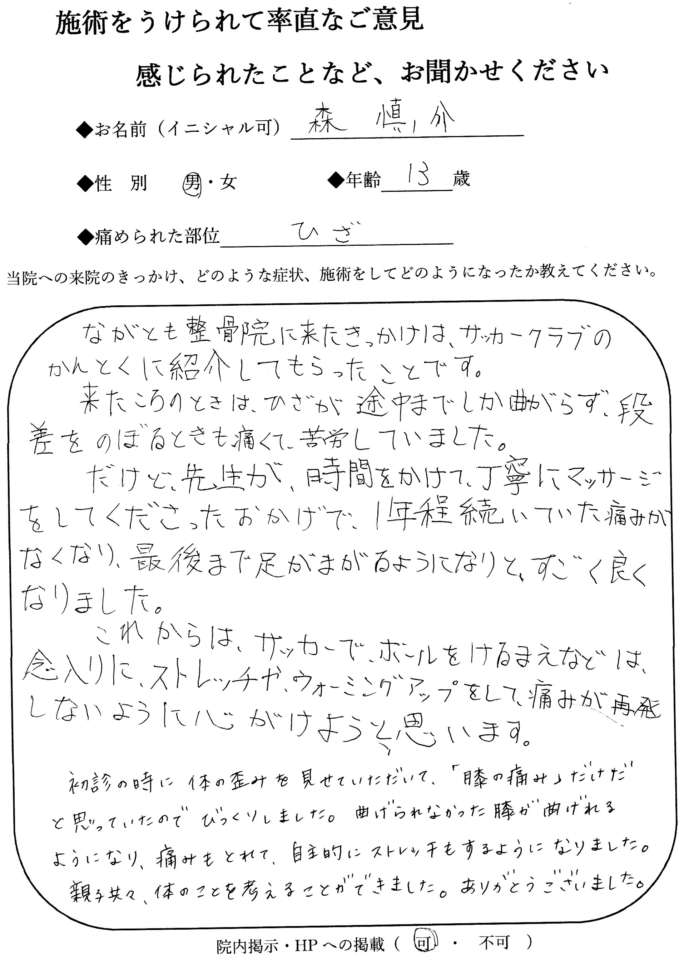 施術をうけられて率直なご意見
感じられたことなど、お聞かせください
◆お名前（イニシャル可） 森 慎介
◆性 別 男・女 ◆年齢 13 歳
◆痛められた部位 ひざ
当院への来院のきっかけ、どのような症状、施術をしてどのようになったか教えてください。
ながとも整骨院に来たきっかけは、サッカークラブの
かんとくに紹介してもらったことです。
来たころのときは、ひざが途中までしか曲がらず、段
差をのぼるときも痛くて、苦労していました。
だけど、先生が、時間をかけて、丁寧にマッサージ
をしてくださったおかげで、1年程続いていた痛みが
なくなり、最後まで足がまがるようになりと、すごく良く
なりました。
これからは、サッカーで、ボールをけるまえなどは、
念入りに、ストレッチや、ウォーミングアップをして、痛みが再発
しないように心がけようと思います。
初診の時に体の歪みを見せていただいて、「膝の痛み」だけだ
と思っていたのでびっくりしました。曲げられなかった膝が曲げれる
ようになり、痛みもとれて、自主的にストレッチもするようになりました。
親子共々、体のことを考えることができました。ありがとうございました。
院内掲示・HPへの掲載（ 可 ・ 不可 ）